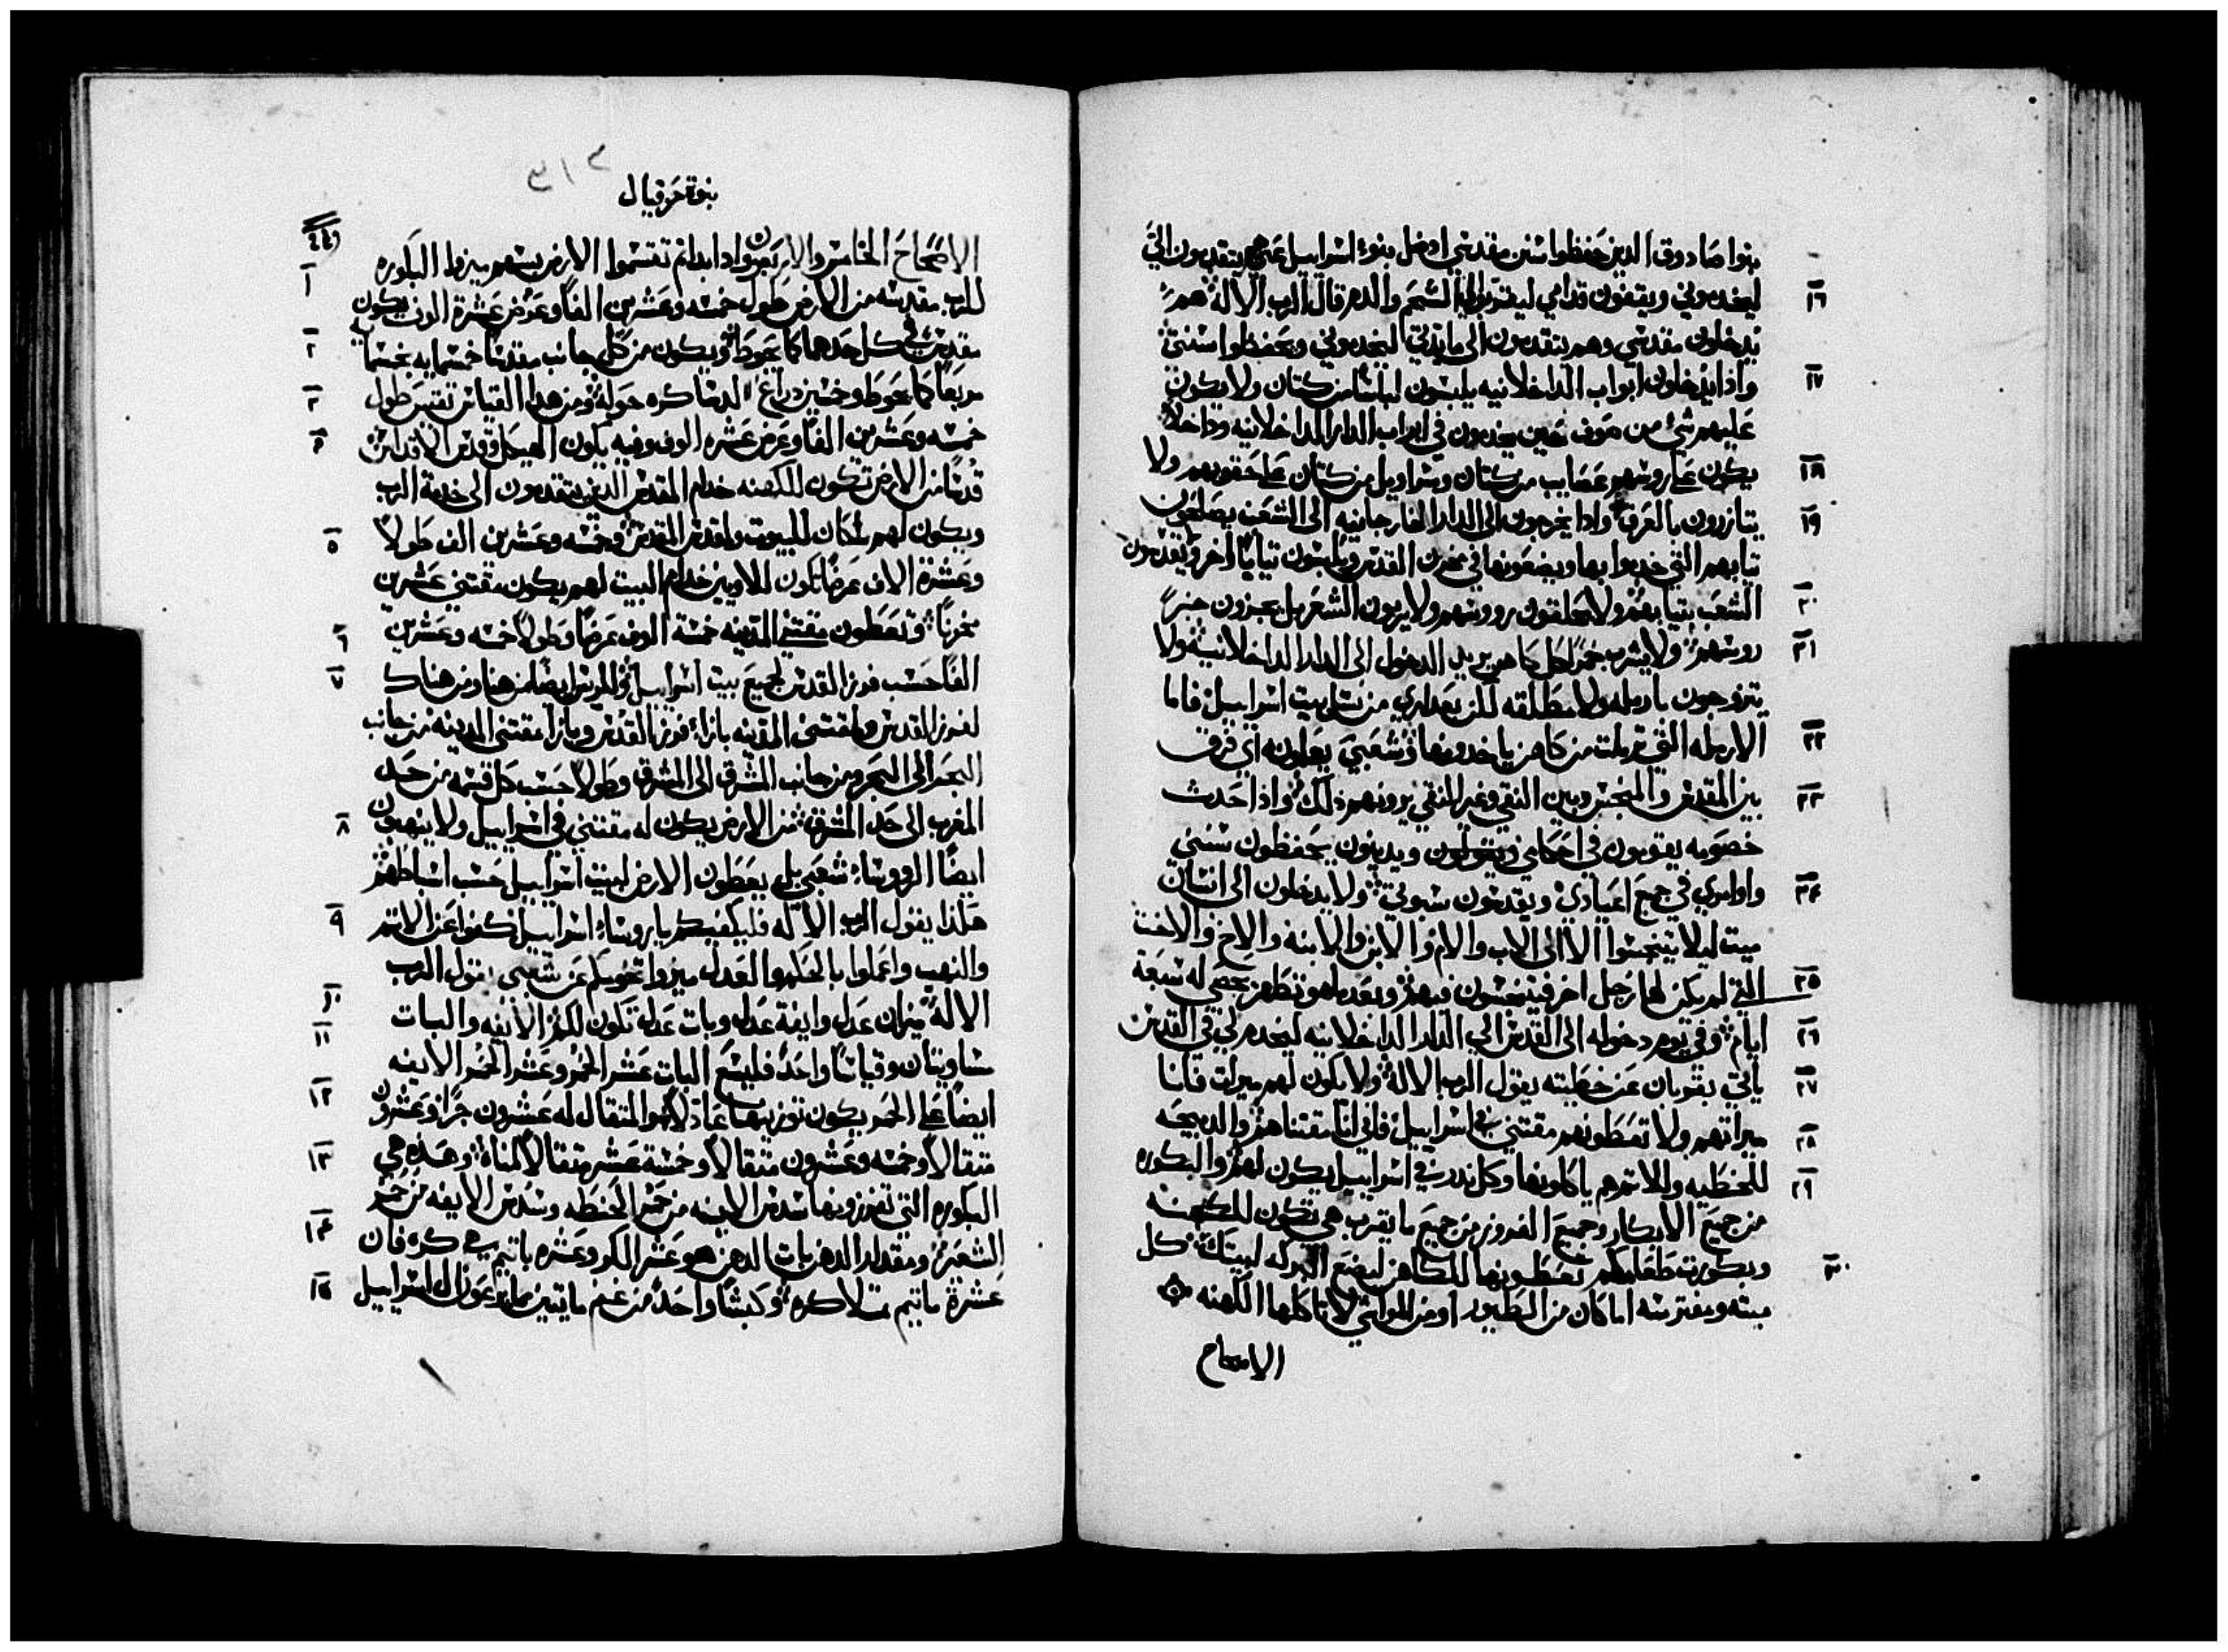 بنوا صادوق الدين حفظوا سنن مقدسي اد ضل بنوا اسراييل عني هم يتقدمون الي
١٦ ليخدموني ويقفون قدامي ليقربوا لي الشحم والدم قال الرب الاله هم
يدخلون مقدسي وهم يتقدمون الى مايدتي ليخدموني ويحفظوا سنني
١٧ واذا يدخلون ابواب الدار الداخلانيه يلبسون لباسا من كتان ولا يكون
عليهم شي من صوف حين يخدمون في ابواب الدار الداخلانيه وداخلا
١٨ يكون على روسهم عصايب من كتان وسراويل من كتان على حقويهم ولا
١٩ يتازرون بالعرق واذا يخرجون الى الدار الخارجانيه الى الشعب يصلعون
تيابهم التي خدموا بها ويضعونها في مخدن القدس ويلبسون تيابا اخر ويقدسون
٢٠ الشعب بتيابهم ولا يحلقون رووسهم ولا يربون الشعر بل يجزون جزا
٢١ روسهم ولا يشرب خمرا كل كاهن يريد الدخول الى الدار الداخلانيه ولا
يتزوجون بارمله ولا مطلقه لكن بعداري من نسل بيت اسراييل فاما
٢٢ الارمله التي ترملت من كاهن ياخدونها وشعبي يعلمونه اي فرق
٢٣ بين المقدس والمنجس وبين النقي وغير النقي يرونهم ذلك واذا حدث
خصومه يقومون في احكامي ويقولون ويدينون يحفظون سنني
٢٤ واوامري في جميع اعيادي ويقدسون سبوتي ولا يدخلون الى انسان
ميت ليلا يتنجسوا الا الى الاب والام والابن والابنه والاخ والاخت
٢٥ التي لم يكن لها رجل اخر فيتنجسون فيهم وبعد ما هو تطهر يحصى له سبعة
٢٦ ايام وفي يوم دخوله الى القدس الى الدار الداخلانيه ليخدم لي في القدس
٢٧ ياتي بقربان عن خطيته يقول الرب الاله ولا يكون لهم ميرات فانا
٢٨ ميراتهم ولا تعطونهم مقتني في اسراييل فاني انا مقتناهم والدبيحه
٢٩ للخطيه وللاتم هم ياكلونها وكل ندر في اسراييل يكون لهم والبكوره
من جميع الابكار وجميع الفروز من جميع ما يقرب هي تكون للكهنه
٣٠ وبكورية طعامكم تعطونها للكاهن ليضع البركه لبيتك كل
ميته ومفترسه اما كان من الطيور او من المواشي لا تاكلها الكهنه
الاصحاح
٣١٣
نبوة حزقيال
الاصحاح الخامس والاربعون واذا بداتم تقتسموا الارض بسهم ميزوا البكوره
١ للرب مقدسه من الارض طول خمسه وعشرين الفا وعرض عشرة الوف يكون
٢ مقدس في كل حدها كما يحوط ويكون من كل جانب مقدسا خمسمايه بخمسمايه
٣ مربعا كما يحوط وخمسين دراع لدساكره حوله ومن هدا القياس تقيس طول
٤ خمسه وعشرين الفا وعرض عشره الوف وفيه يكون الهيكل وقدس الاقداس
قدسا من الارض تكون للكهنه خدام المقدس الدين يتقدمون الى خدمة الرب
٥ ويكون لهم مكان للبيوت ولقدس القدس وخمسه وعشرين الف طولا
وعشرة الاف عرضا تكون للاويين خدام البيت لهم يكون مقتني عشرين
٦ مخزنا وتعطون مقتني المدينه خمسة الوف عرضا وطولا خمسه وعشرين
٧ الفا حسب فرز القدس لجميع بيت اسراييل وللريس ايضا من هنا ومن هناك
لفرز القدس ولمقتني المدينه بازاء فرز القدس وبازا مقتني المدينه من جانب
البحر الى البحر ومن جانب الشرق الى المشرق وطولا حسب كل قسمه من حد
٨ المغرب الى حد المشرق من الارض يكون له مقتني في اسراييل ولا ينهبون
ايضا الرووساء شعبي بل يعطون الارض لبيت اسراييل حسب اسباطهم
٩ هكذا يقول الرب الاله فليكفيكم يا روساء اسراييل كفوا عن الاتم
والنهب واعملوا بالحكم والعدل ميزوا تخومكم عن شعبي يقول الرب
١٠ الاله ميزان عدل وايفة عدل وبات عدل تكون لكم الايفه والبات
١١ متساويتان وقياسا واحد فليسع البات عشر الخمر وعشر الخمر الايفه
١٢ ايضا على الخمر يكون توزينها عادلا هو المتقال له عشرون جزا وعشرون
١٣ متقالا وخمسه وعشرون متقالا وخمسة عشر متقالا لمناه وهذه هي
البكوره التي تفرزونها سدس الايفه من خمر الحنطه وسدس الايفه من خمر
١٤ الشعير ومقدار الدهن بات الدهن هو عشر الكر وعشره باتيم هي كره فان
١٥ عشرة ماتيم تملا كره وكبشا واحد من غنم مايتين ما يرعون ال اسراييل